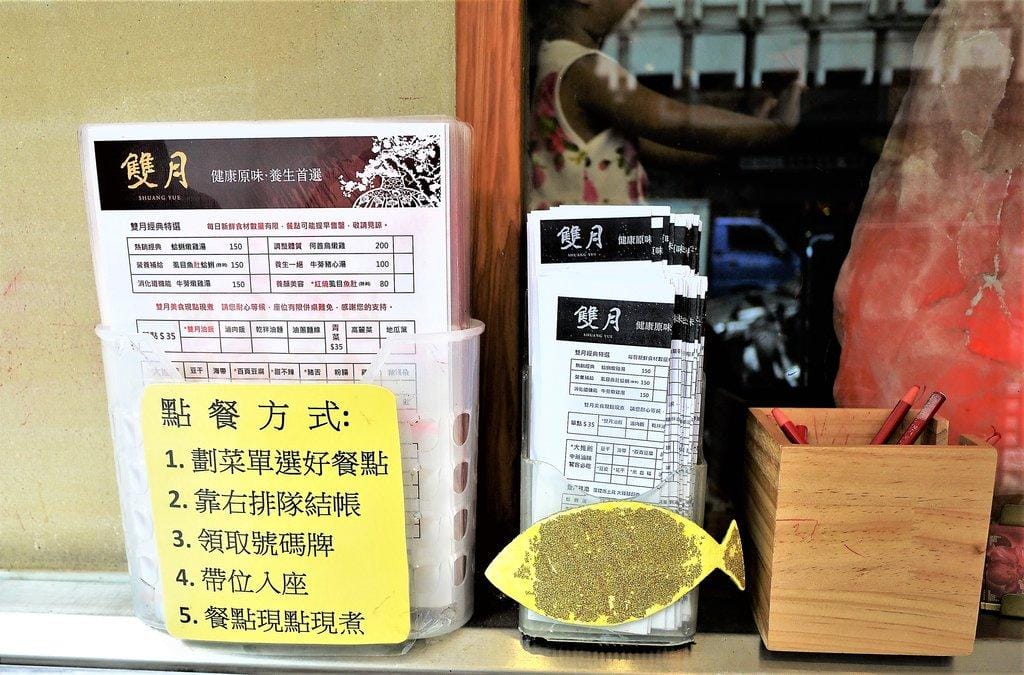 雙月
SHUANG YUE
健康原味·養生首選
雙月經典特選 每日新鮮食材數量有限，餐點可能提早售罄，敬請見諒。
熱銷經典 蛤蜊燉雞湯 150 調整體質 何首烏燉雞 200
營養補給 虱目魚肚蛤蜊 150 養生一絕 牛蒡豬心湯 100
消化纖機能 牛蒡燉雞湯 150 養顏美容 *紅燒虱目魚肚 80
雙月美食現點現煮 請您耐心等候，座位有限併桌難免，感謝您的支持。
單點$35 *雙月油飯 滷肉飯 乾拌油麵 油蔥麵線 青菜$35 高麗菜 地瓜葉
豆干 海帶 *百頁豆腐 *甜不辣 *豬舌 粉腸
點餐方式:
1. 劃菜單選好餐點
2. 靠右排隊結帳
3. 領取號碼牌
4. 帶位入座
5. 餐點現點現煮
雙月
SHUANG YUE
健康原味
雙月
SHUANG YUE
健康原味
雙月經典特選 每日新鮮食材數量
熱銷經典 蛤蜊燉雞湯 150
營養補給 虱目魚肚蛤蜊 150
消化纖機能 牛蒡燉雞湯 150
雙月美食現點現煮 請您耐心等候
單點$35 *雙月油飯 滷肉飯 乾拌
*大推薦 豆干 海帶 *百頁豆腐